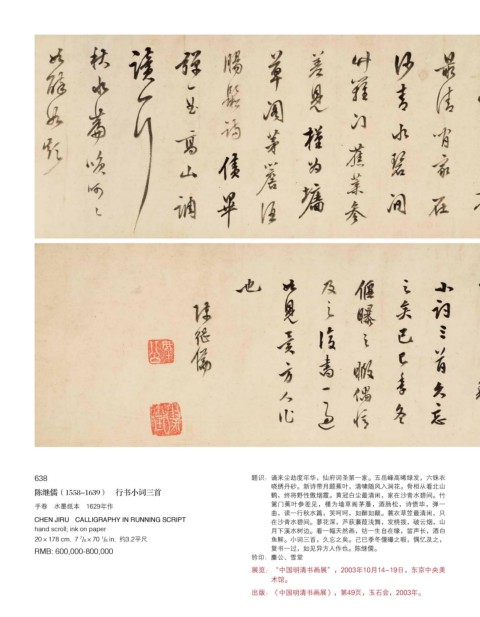 最清閒家在
沙青水碧間
竹籬門蕉葉參
差見槿為墻
草閣茅簷酒
腸鬆詩債畢
彈一曲高山調
讀一行
秋水篇笑呵々
如醉如顛
小詞三首久忘
之矣己巳季冬
偃曝之暇偶憶
及之復書一過
如見異方人作
也
陳繼儒
638
陈继儒（1558-1639） 行书小词三首
手卷 水墨纸本 1629年作
CHEN JIRU CALLIGRAPHY IN RUNNING SCRIPT
hand scroll; ink on paper
20 x 178 cm. 7 7/8 x 70 1/8 in. 约3.2平尺
RMB: 600,000-800,000
题识：谪来尘劫度年华，仙府词圣第一家。五岳峰高晞绿发，六铢衣
晓绣丹砂。新诗带月题蕉叶，清啸随风入涧花。骨相从看北山
鹤，终将野性傲烟霞。黄冠白尘最清闲，家在沙青水碧间。竹
篱门蕉叶参差见，槿为墙草阁茅，酒肠松，诗债毕，弹一
曲，读一行秋水篇，笑呵呵，如醉如颠。蓑衣草笠最清闲，只
在沙青水碧间。蓼花深，芦荻蒹葭浅舞，发桥按，破云烟，山
月下溪水树边。着一幅天然画，结一生自在缘，笛声长，酒白
鱼鲜。小词三首，久忘之矣。己巳季冬偃曝之暇，偶忆及之，
复书一过，如见异方人作也。陈继儒。
钤印：麋公、雪堂
展览：“中国明清书画展”，2003年10月14-19日，东京中央美
术馆。
出版：《中国明清书画展》，第49页，玉石会，2003年。